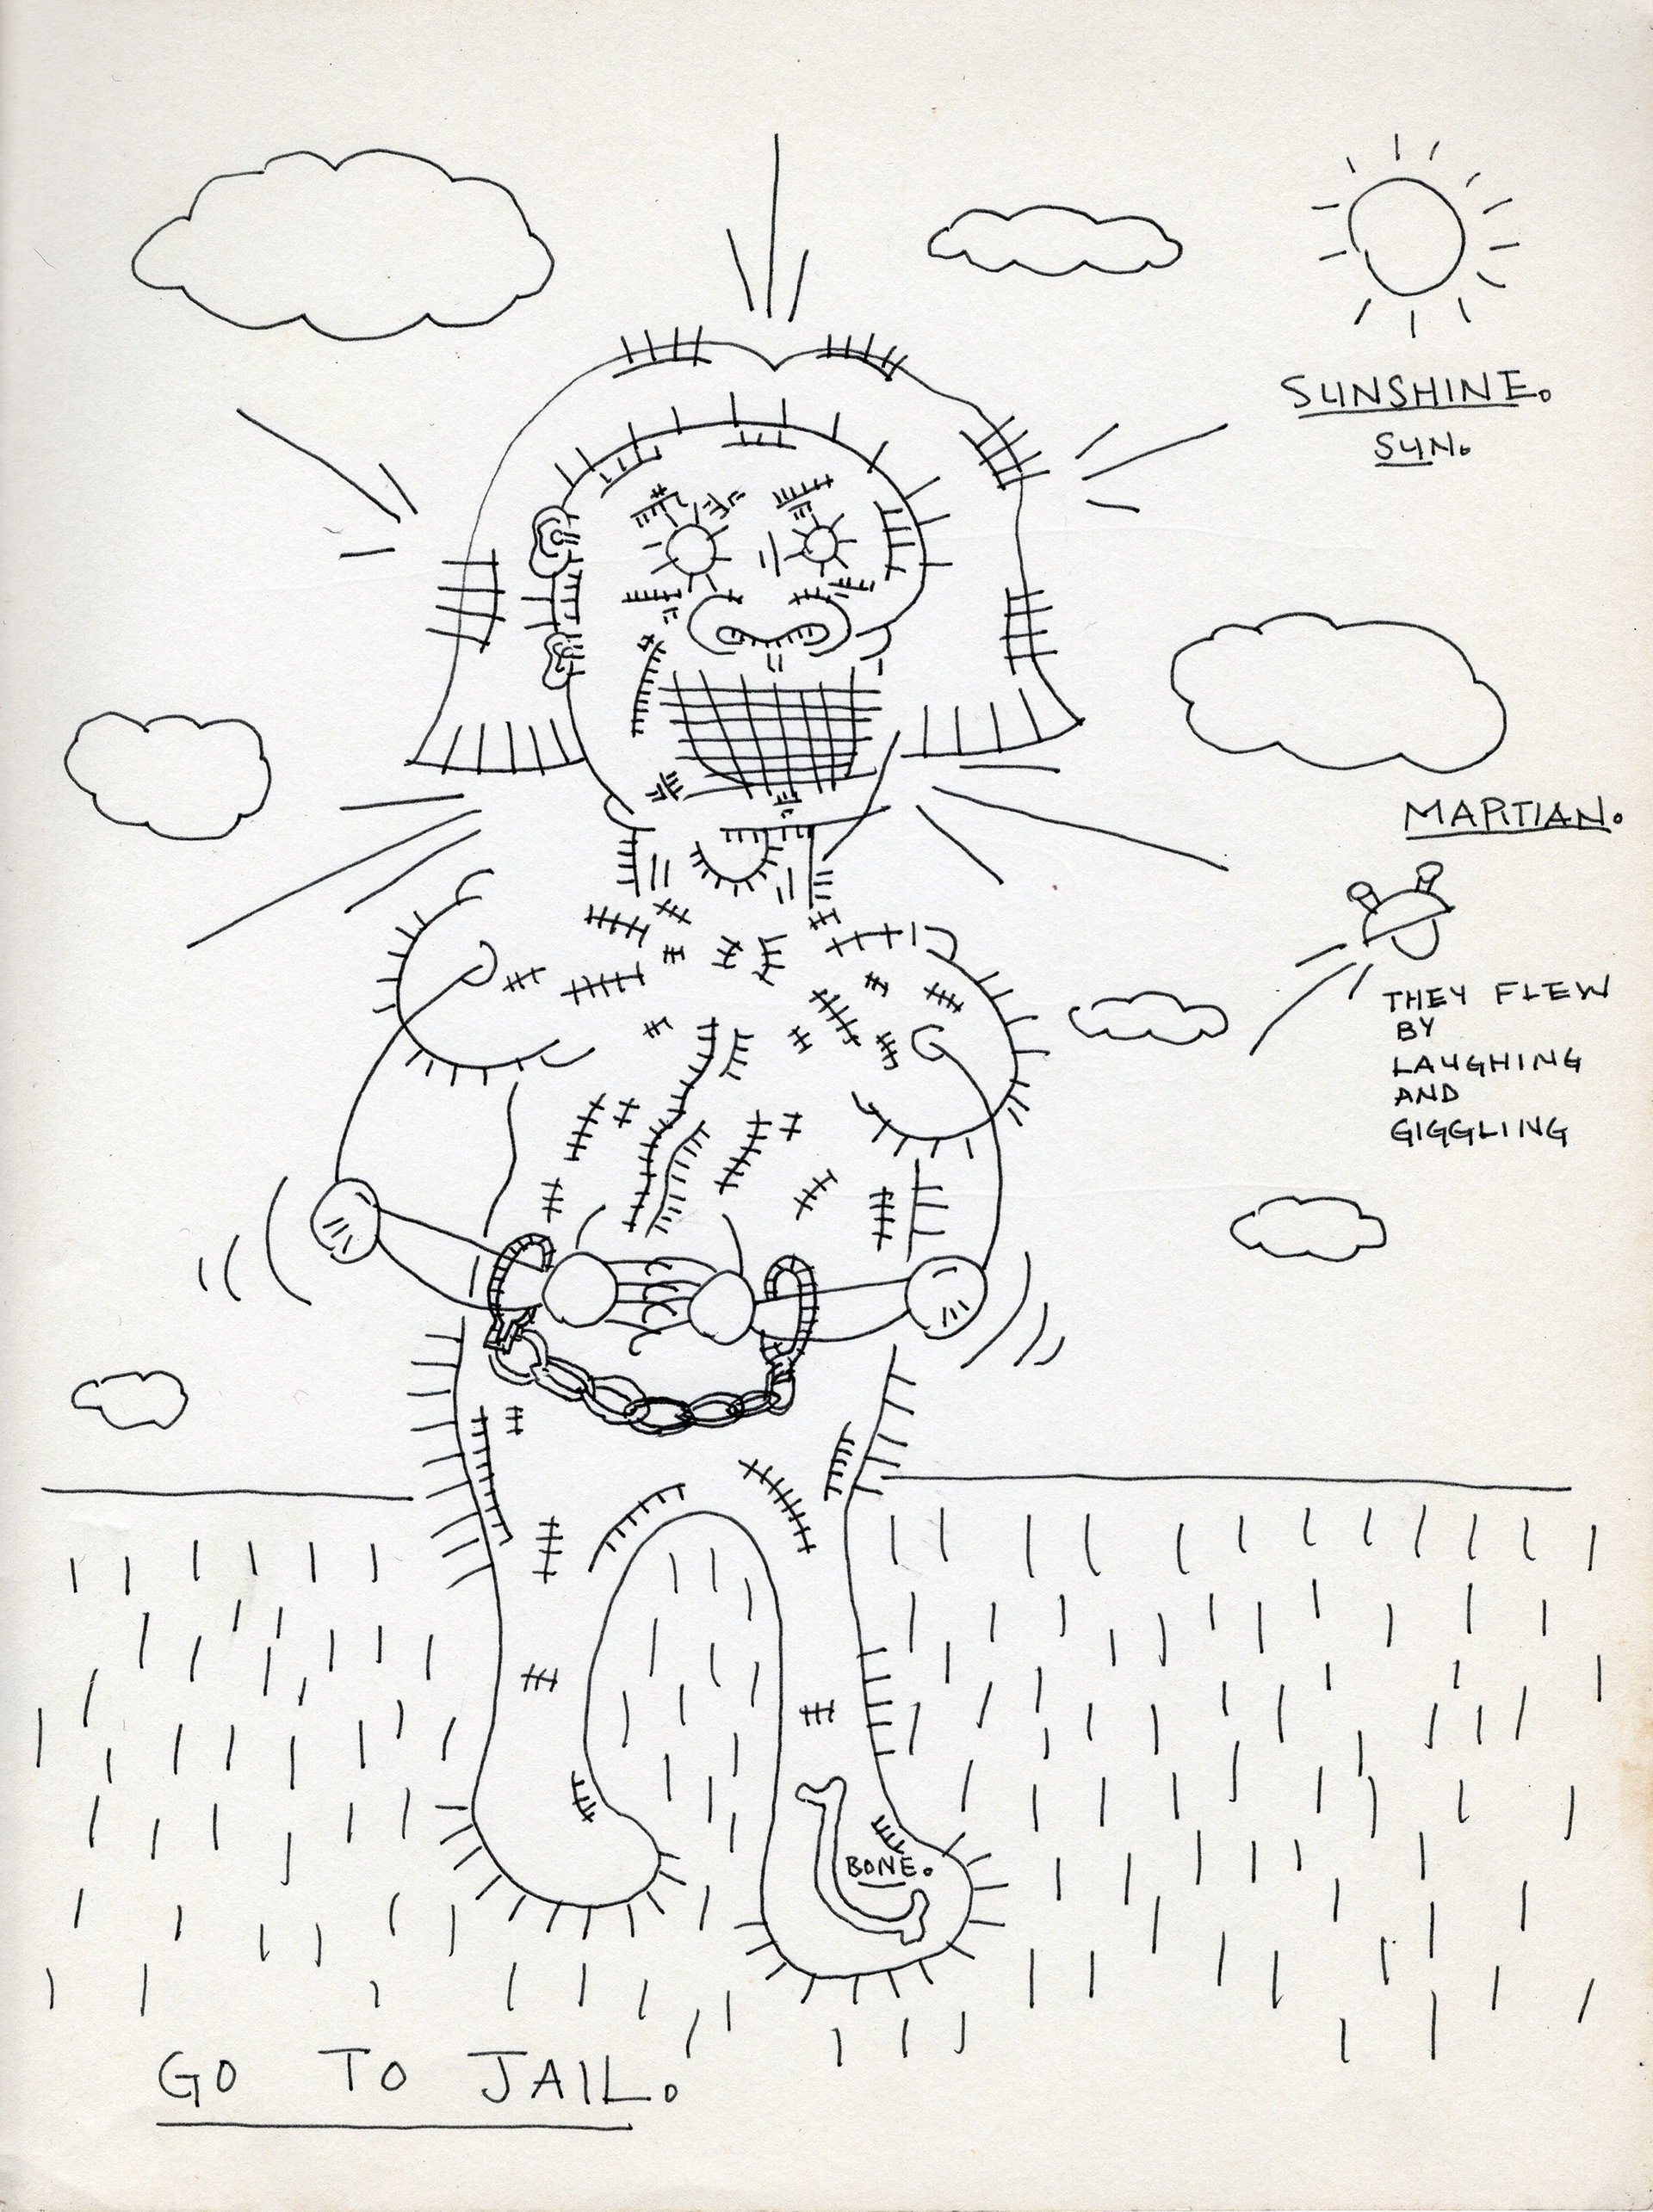 SUNSHINE.
SUN.
MARTIAN.
THEY FLEW
BY
LAUGHING
AND
GIGGLING
BONE.
GO TO JAIL.